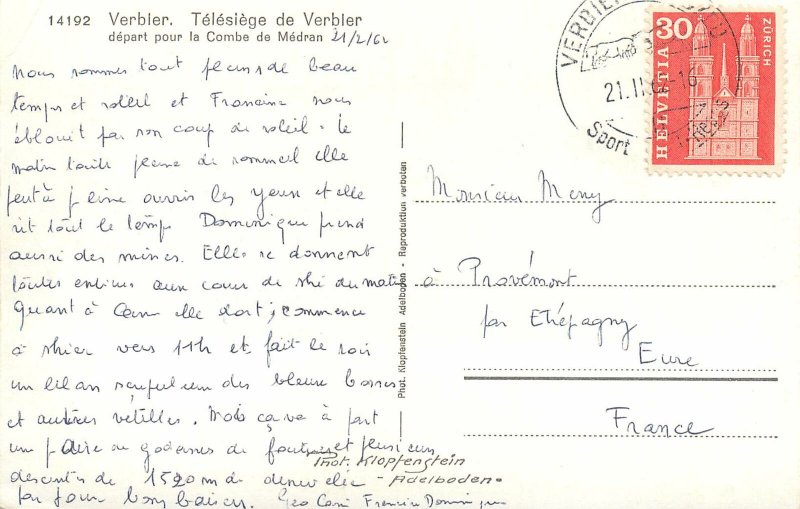 14192 Verbier. Télésiège de Verbier
départ pour la Combe de Médran 21/2/62
Nous sommes tout pleins de beau
temps et soleil et Francine nous
éblouit par son coup de soleil. Le
matin toute pleine de sommeil elle
peut à peine ouvrir les yeux et elle
rit tout le temps Dominique prend
aussi des mines. Elles se donnent
toutes entières aux cours de ski du matin
Quant à elle dort, commence
à skier vers 11h et fait le soir
un bilan scrupuleux des bleus bosses
et autres vétilles. Mais ça va à part
un paire de de et plusieurs
descentes de 1520 m de dénivelée
par jour bons baisers. Geo Francine Dominique
Phot. Klopfenstein
Adelboden
Phot. Klopfenstein Adelboden - Reproduktion verboten
VERBIER
21.II.62-16
Sport
HELVETIA
30
ZÜRICH
Monsieur Meny
à Provémont
par Etrépagny
Eure
France